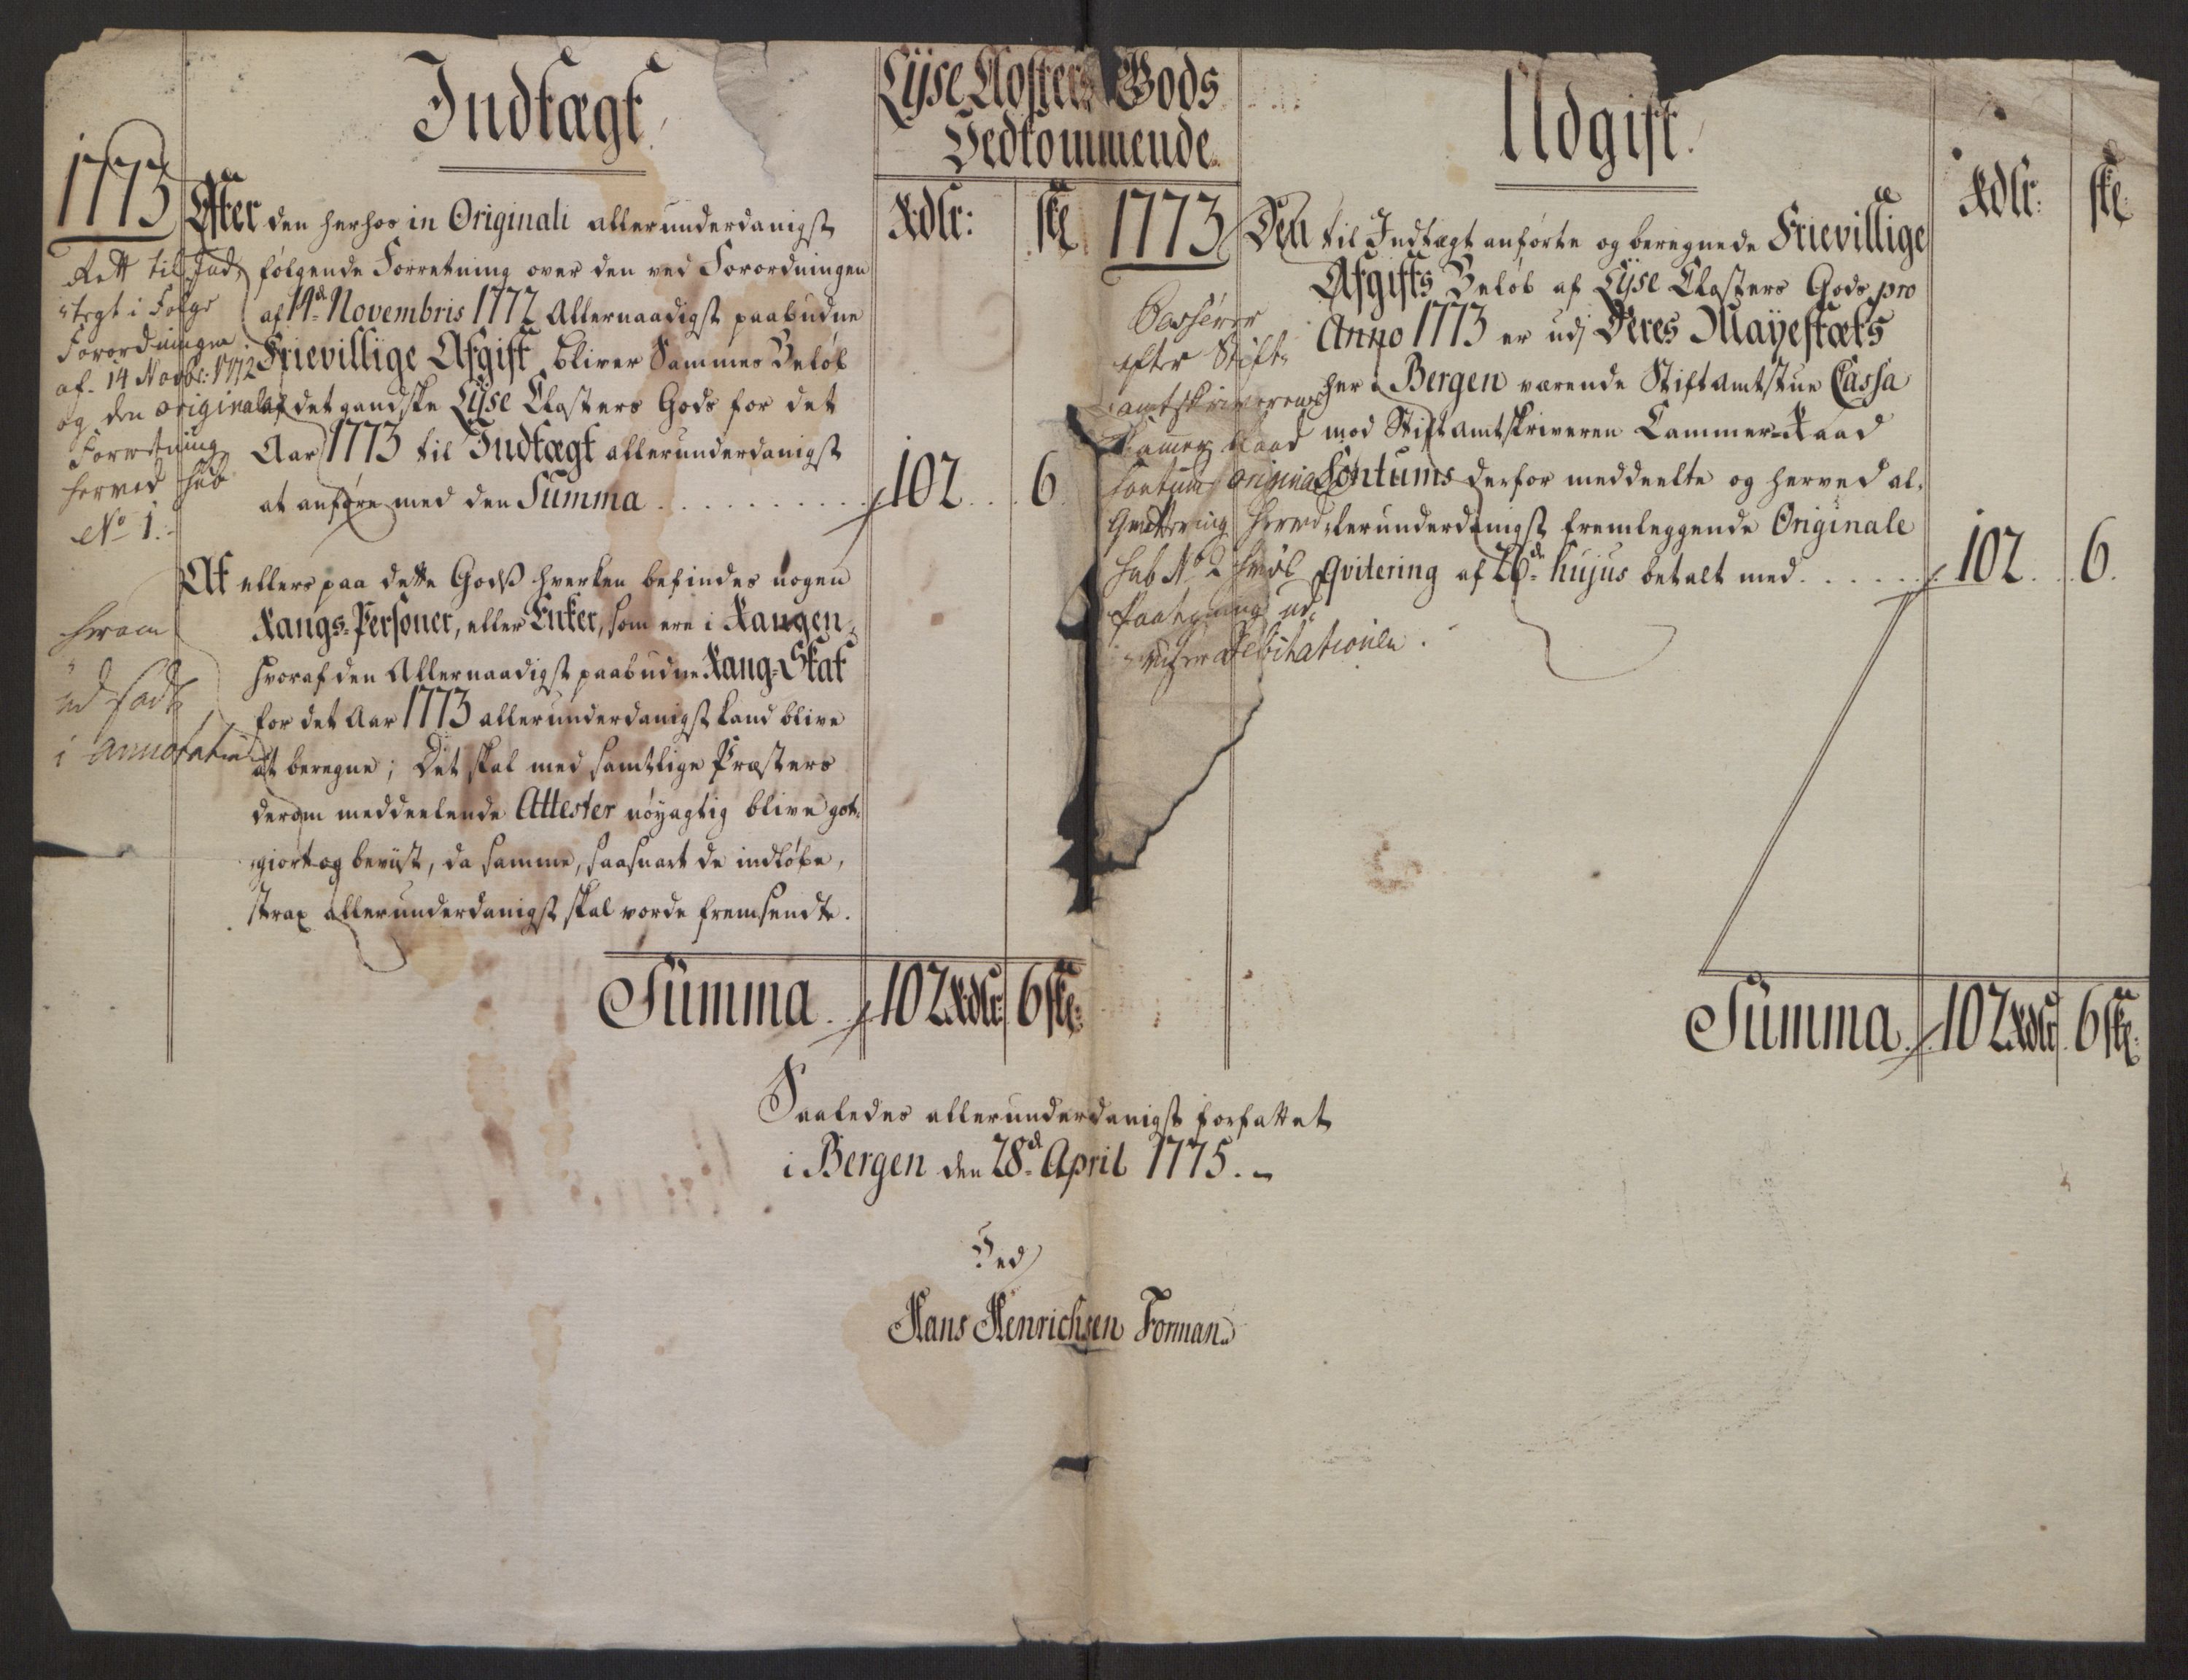 Lÿse Closters Gods
Vedkommende.
Indtægt.
Rdlr: sk:
1773
Efter den herhos in Originali allerunderdanigst
følgende Forretning over den ved Forordningen
af 14d. Novembris 1772 Allernaadigst paabudne
Frievillige Afgift, bliver Sammes Beløb
af det gandske Lÿse Closters Gods for det
Aar 1773 til Indtægt allerunderdanigst
at anføre med den Summa . . . . . . . . 102. . . 6.
Rett til Ind,
tegt i Følge
Forordningen
af. 14 Novbr: 1772
og den original
Forretning
herved sub
No 1.
At ellers paa dette Godß hverken befindes nogen
Rangs-Personer, eller Enker, som ere i Rangen,
hvoraf den Allernaadigst paabudne Rang-Skat
for det Aar 1773 allerunderdanigst kand blive
at beregne; Det skal med samtlige Præsters
derom meddeelende Attester nøÿagtig blive got,
giort og beviist, da samme, saasnart de indløbe,
strax allerunderdanigst skal vorde fremsendte.
herom
ud sadt
i annotation
Summa . 102 Rdlr: 6 sk:
Udgift.
Rdlr: sk:
1773
Den til Indtægt anførte og beregnede Frievillige
Afgifts Beløb af Lÿse Closters Gods pro
Anno 1773 er udj Deres Mayestæts
her i Bergen værende Stiftamtstue Cassa
mod Stiftamtskriveren Cammer-Raad
Fontums derfor meddeelte og herved al,
lerunderdanigst fremleggende Originale
Qvitering af 26de hujus betalt med . . . . . . 102. . 6.
Passerer
efter Stift,
amtskriverens
Kamer Raad
Fontums original
Qvittering herved
sub No 2 hvis
Paategning ud,
viser Debitationen.
Summa . 102 Rdlr 6 sk:
Saaledes allerunderdanigst forfattet
i Bergen den 28d. April 1775. -
Ved
Hans Henrichsen Forman